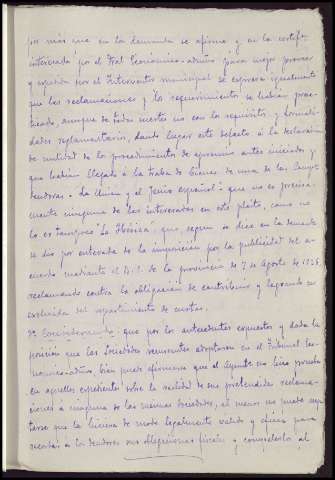 por más que en la demanda se afirma y en la certifi-
interesada por el Tral Económico-admvo para mejor proveer
y expedida por el Interventor municipal se expresa igualmente
que las reclamaciones y los requerimientos se habían prac-
ticado, aunque de todas suertes no con los requisitos y formali-
dades reglamentarias, dando lugar este defecto a la declaración
de nulidad de los procedimientos de apremio antes iniciados y
que habían llegado a la traba de bienes de una de las Compª
deudoras - La Unión y el Fenix español - que no es precisa-
mente ninguna de las interesadas en este pleito, como no
lo es tampoco La Ibérica, que según se dice en la demanda
se dio por enterada de la imposición por la publicidad del a-
cuerdo mediante el B.O. de la provincia de 7 de Agosto de 1926,
reclamando contra la obligación de contribuir y logrando ser
excluida del repartimiento de cuotas.
Considerando, que por los antecedentes expuestos y dada la
posición que las Sociedades recurrentes adoptaron en el Tribunal
bien puede afirmarse que el Ayuntº no hizo prueba
en aquellos expedientes sobre la realidad de sus pretendidas reclama-
ciones a ninguna de las mismas Sociedades, al menos no puede repu-
tarse que la hiciera de modo legalmente válido y eficaz para
recordar a los deudores sus obligaciones fiscales y compelerlos al